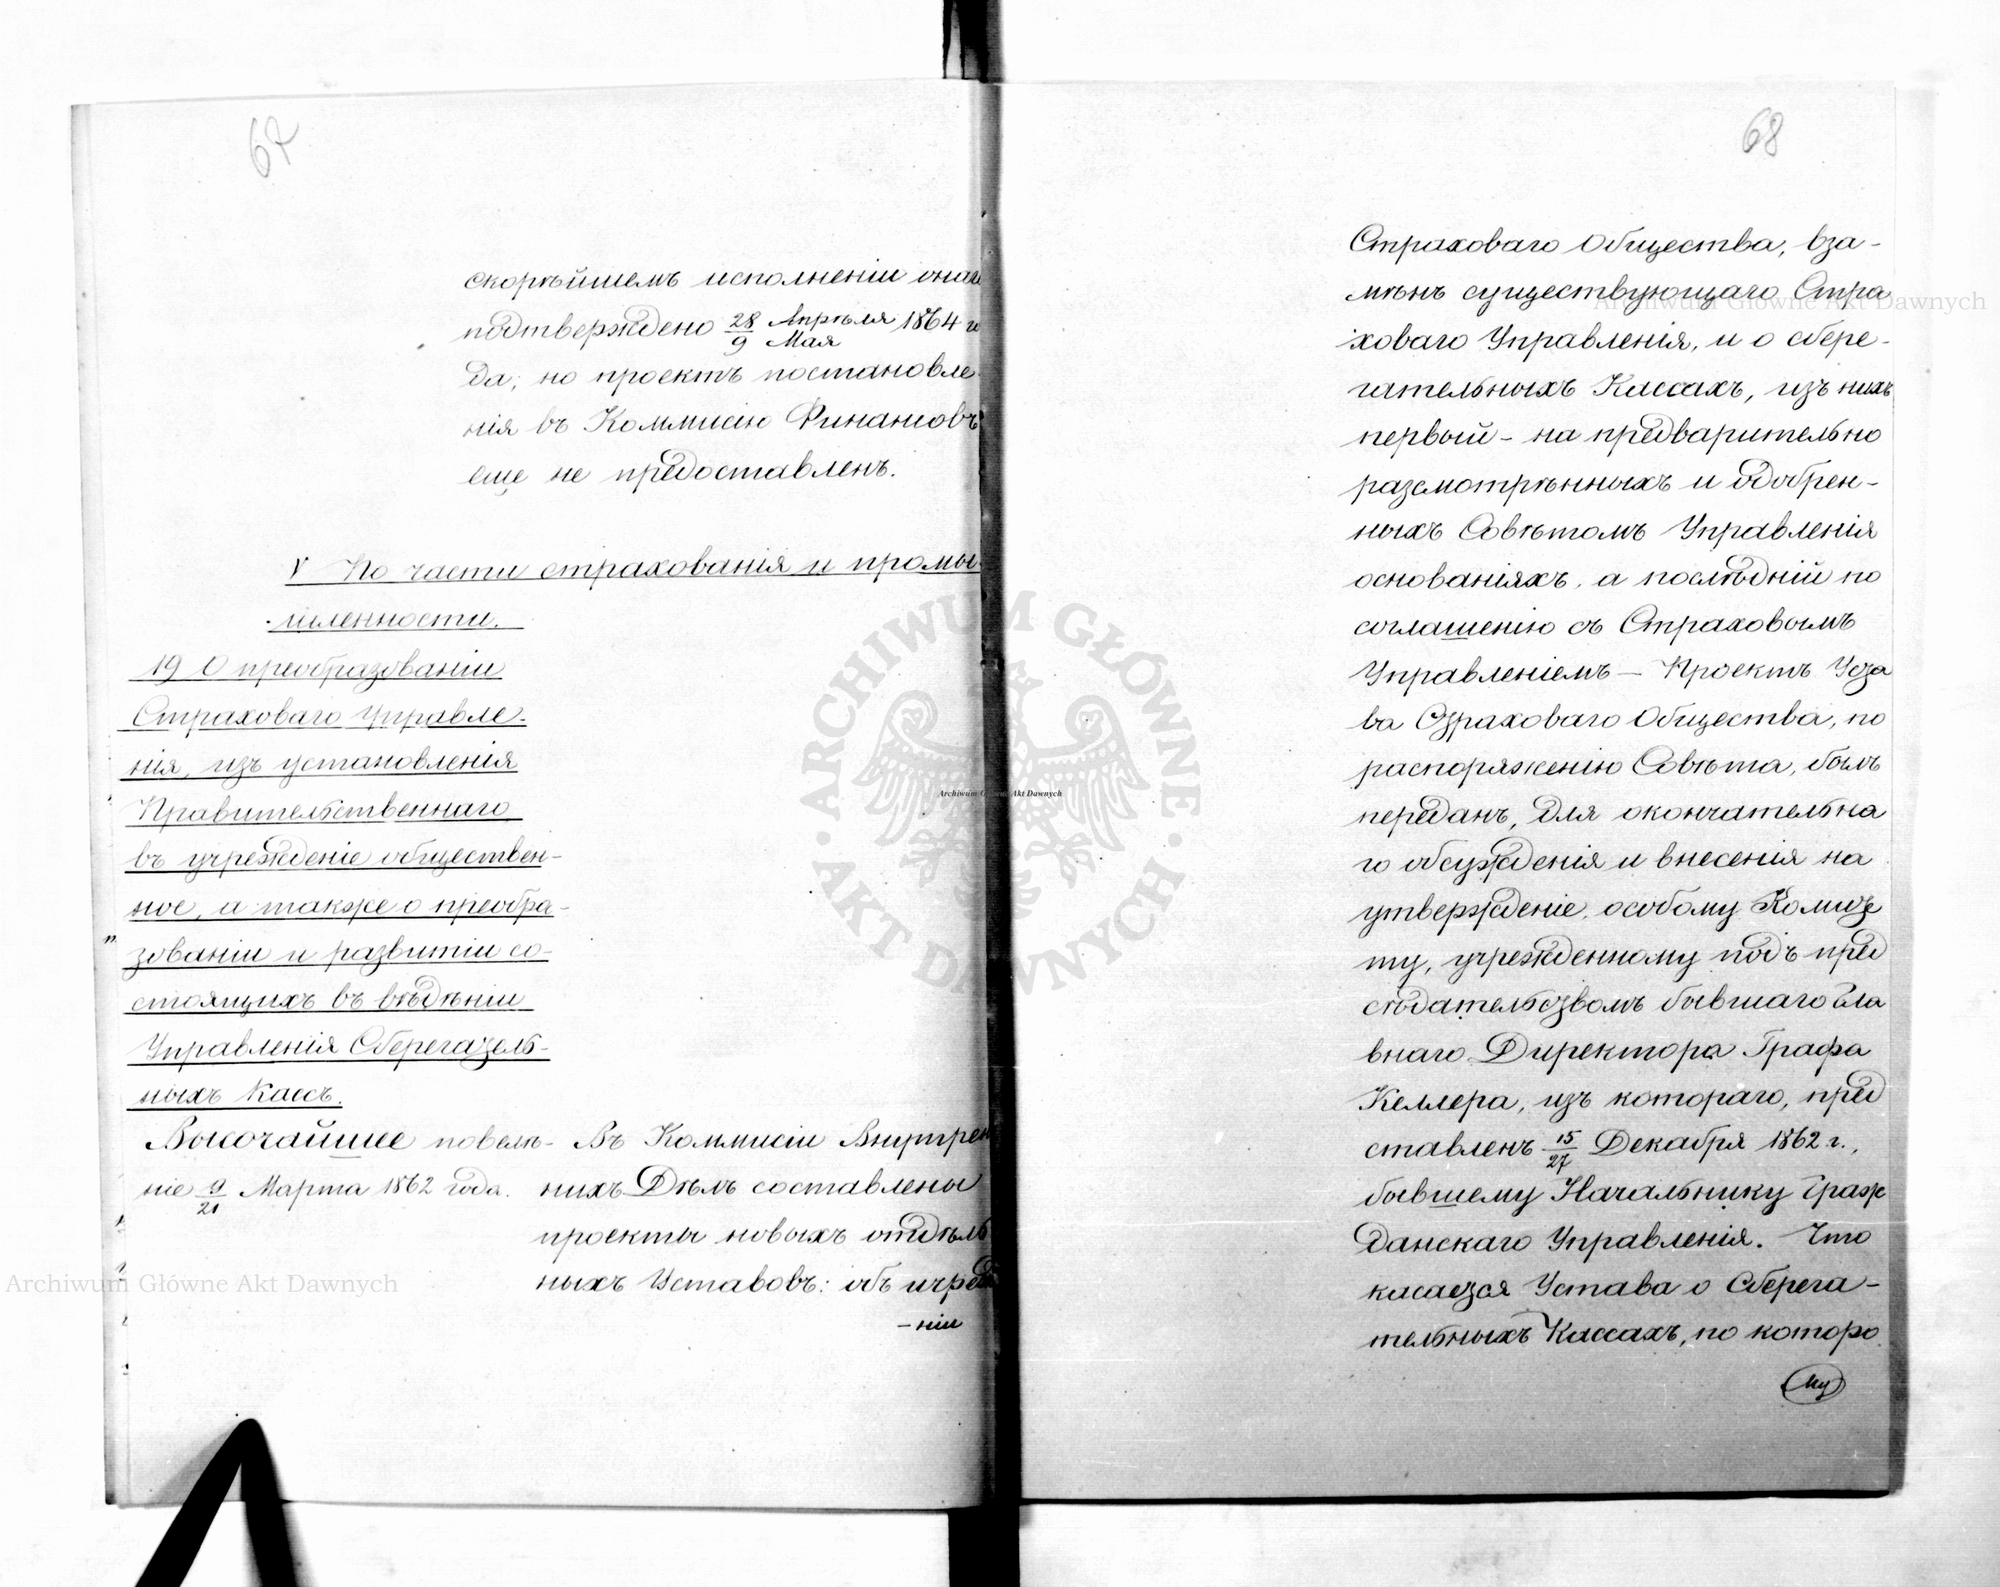 67
скорѣйшемъ исполненіи онаго
подтверждено 28/9 Апрѣля/Мая 1864 го
да; но проектъ постановле
нія въ Коммисію Финансовъ
еще не предоставленъ.
V По части страхованія и промы
шленности.
19 О преобразованіи
Страховаго Управле-
нія, изъ установленія
Правительственнаго
въ учрежденіе обществен-
ное, а также о преобра-
зованіи и развитіи со-
стоящихъ въ вѣдѣніи
Управленія Сберегатель-
ныхъ Кассъ.
Высочайшее повелѣ-
ніе 9/21 Марта 1862 года.
Въ Коммисіи Внутрен
нихъ Дѣлъ составлены
проекты новыхъ отдѣль
ныхъ Уставовъ: объ учрежде
-ніи
68
Страховаго Общества, вза-
мѣнъ существующаго Стра
ховаго Управленія, и о сбере-
гательныхъ Кассахъ, изъ нихъ
первый - на предварительно
разсмотрѣнныхъ и одобрен-
ныхъ Совѣтомъ Управленія
основаніяхъ, а послѣдній по
соглашенію съ Страховымъ
Управленіемъ — Проектъ Уста
ва Страховаго Общества, по
распоряженію Совѣта, былъ
переданъ, для окончательна
го обсужденія и внесенія на
утвержденіе, особому Комите
ту, учрежденному подъ пред
сѣдательствомъ бывшаго Гла
внаго Директора Графа
Келлера, изъ котораго, пред
ставленъ 15/27 Декабря 1862 г.,
бывшему Начальнику Граж
данскаго Управленія. Что
касается Устава о Сберега-
тельныхъ Кассахъ, по которо
му
Archiwum Główne Akt Dawnych
Archiwum Główne Akt Dawnych
Archiwum Główne Akt Dawnych
ARCHIWUM GŁÓWNE · AKT DAWNYCH ·